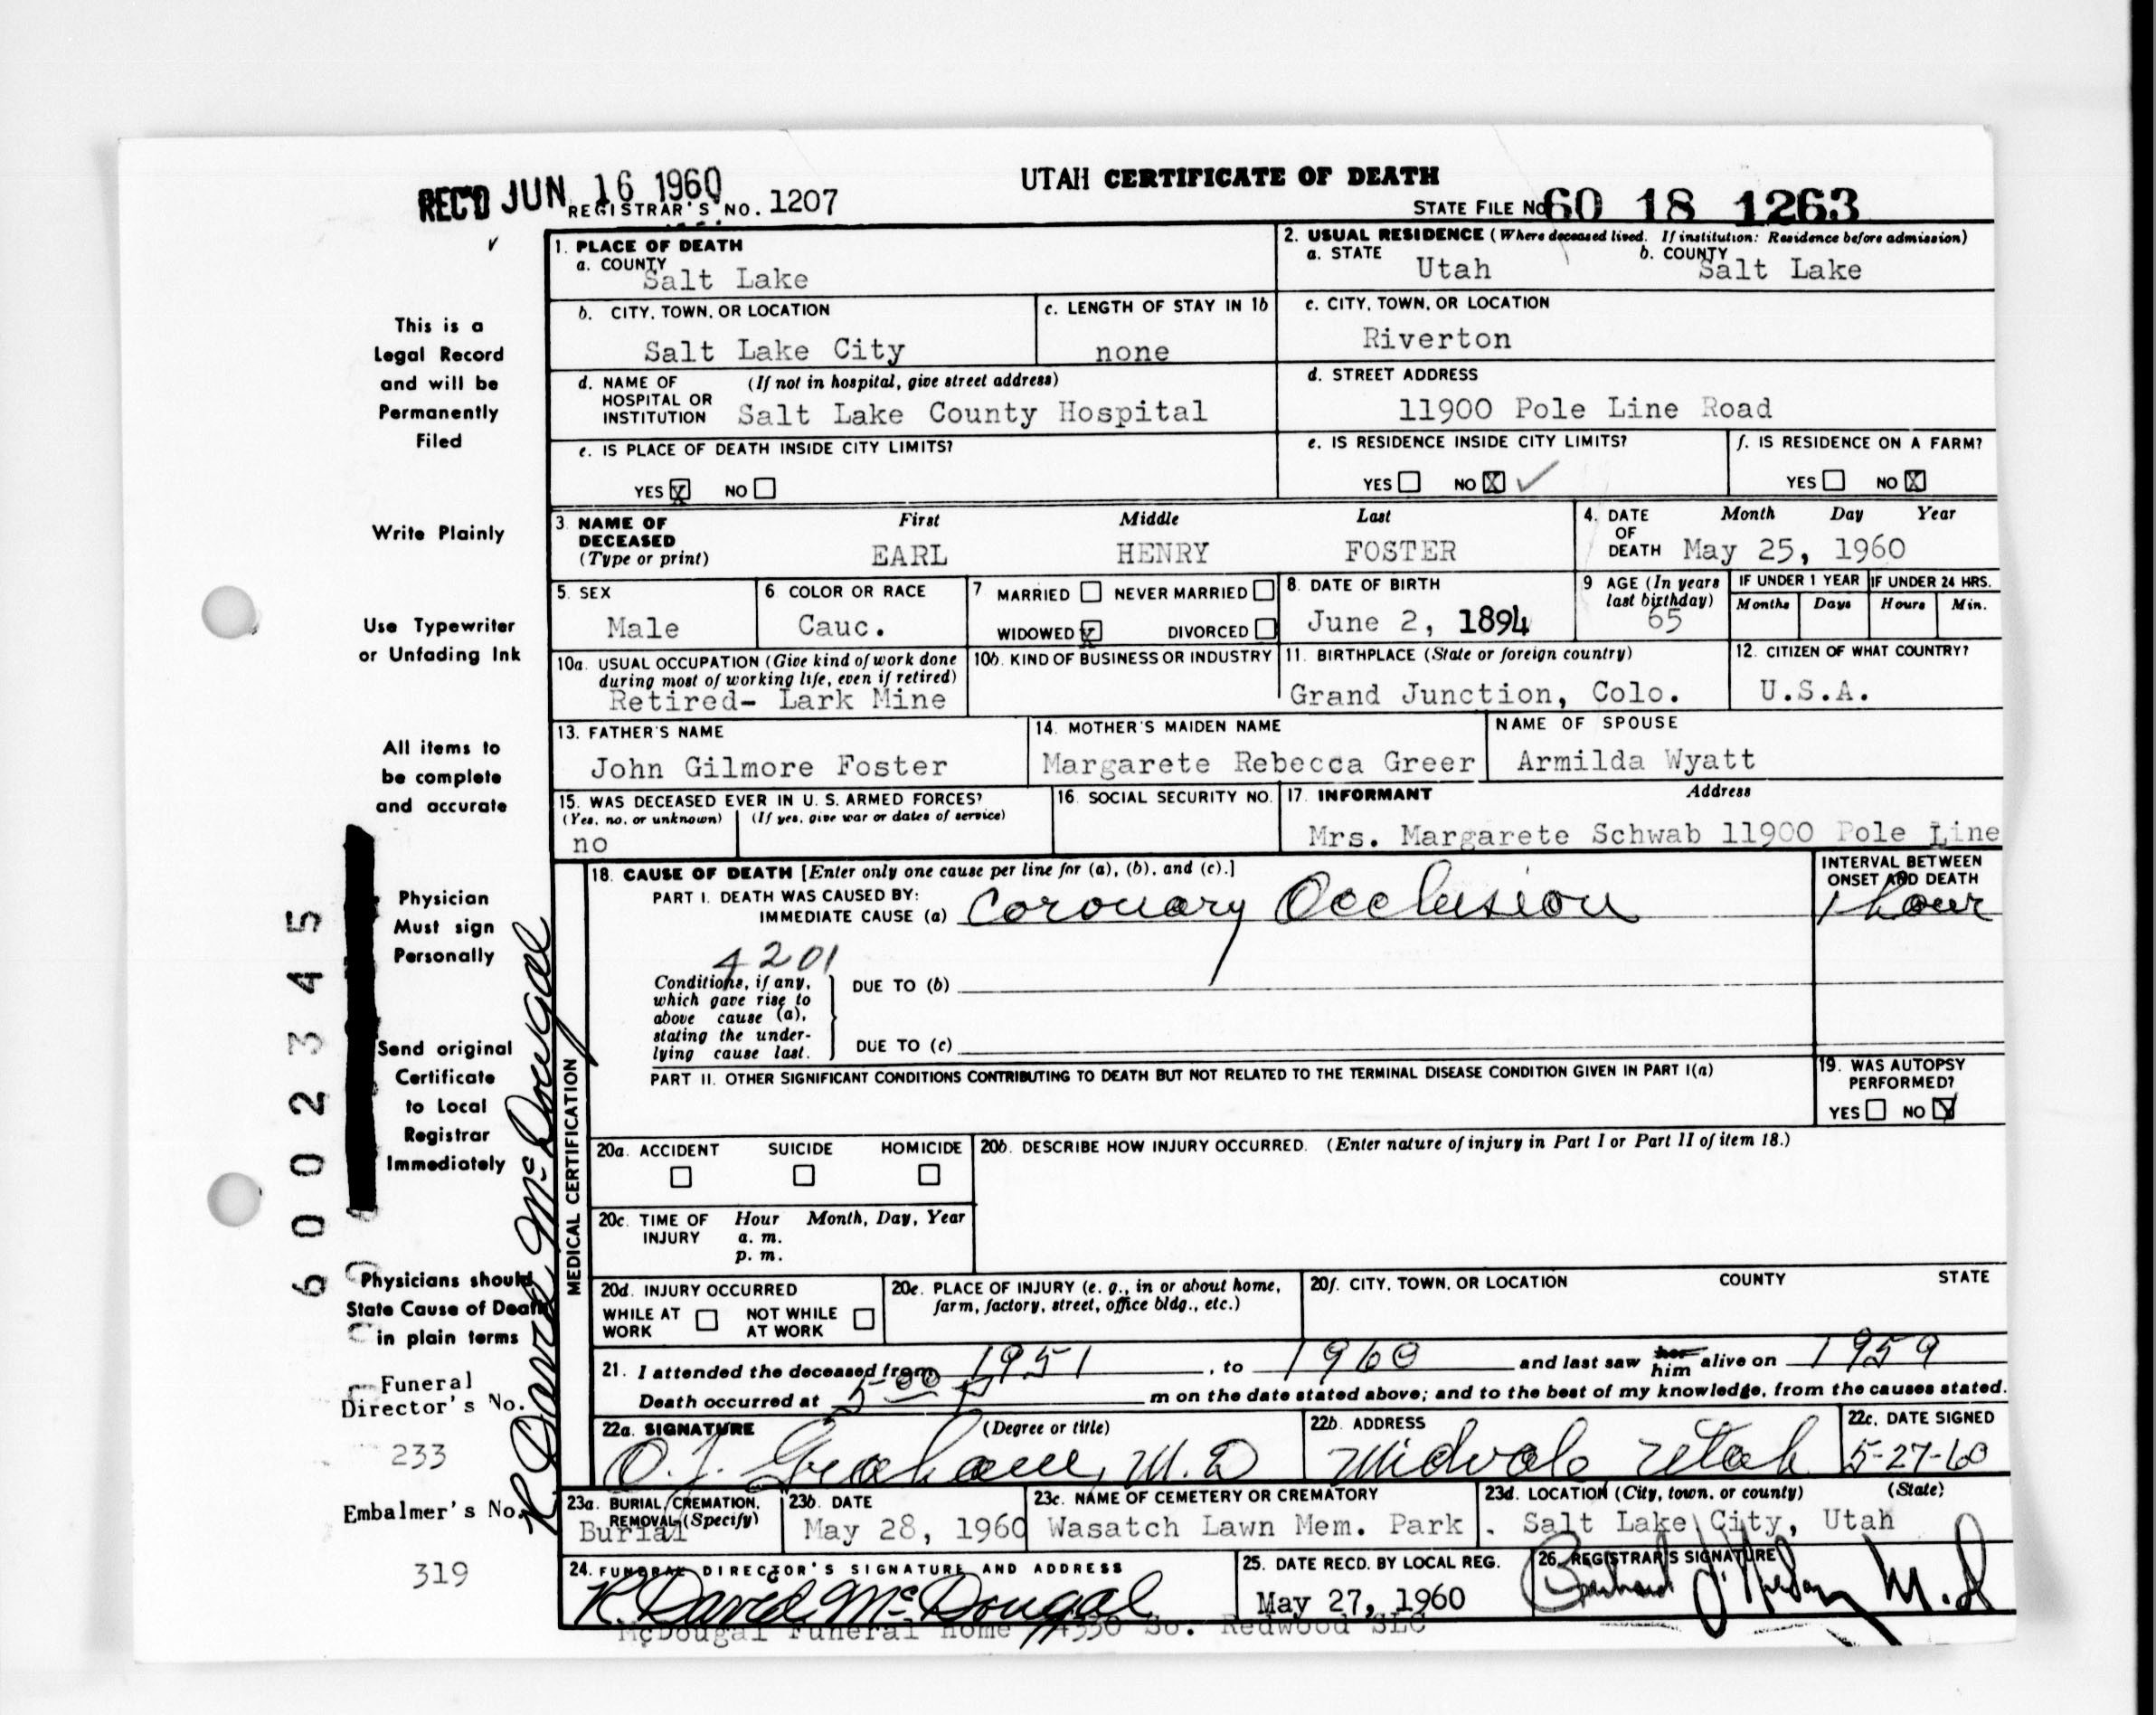 UTAH CERTIFICATE OF DEATH
REC'D JUN 16 1960
REGISTRAR'S NO. 1207
STATE FILE NO. 60 18 1263
1. PLACE OF DEATH
a. COUNTY
Salt Lake
2. USUAL RESIDENCE (Where deceased lived. If institution: Residence before admission)
a. STATE Utah b. COUNTY Salt Lake
b. CITY, TOWN, OR LOCATION
Salt Lake City
c. LENGTH OF STAY IN 1b
none
c. CITY, TOWN, OR LOCATION
Riverton
d. NAME OF HOSPITAL OR INSTITUTION (If not in hospital, give street address)
Salt Lake County Hospital
d. STREET ADDRESS
11900 Pole Line Road
e. IS PLACE OF DEATH INSIDE CITY LIMITS?
YES X NO
e. IS RESIDENCE INSIDE CITY LIMITS?
YES NO X
f. IS RESIDENCE ON A FARM?
YES NO X
3. NAME OF DECEASED (Type or print)
First Middle Last
EARL HENRY FOSTER
4. DATE OF DEATH Month Day Year
May 25, 1960
5. SEX
Male
6. COLOR OR RACE
Cauc.
7 MARRIED NEVER MARRIED
WIDOWED X DIVORCED
8. DATE OF BIRTH
June 2, 1894
9 AGE (In years last birthday)
65
IF UNDER 1 YEAR IF UNDER 24 HRS.
Months Days Hours Min.
10a. USUAL OCCUPATION (Give kind of work done during most of working life, even if retired)
Retired- Lark Mine
10b. KIND OF BUSINESS OR INDUSTRY
11. BIRTHPLACE (State or foreign country)
Grand Junction, Colo.
12. CITIZEN OF WHAT COUNTRY?
U.S.A.
13. FATHER'S NAME
John Gilmore Foster
14. MOTHER'S MAIDEN NAME
Margarete Rebecca Greer
NAME OF SPOUSE
Armilda Wyatt
15. WAS DECEASED EVER IN U. S. ARMED FORCES?
(Yes, no, or unknown) (If yes, give war or dates of service)
no
16. SOCIAL SECURITY NO.
17. INFORMANT Address
Mrs. Margarete Schwab 11900 Pole Line
MEDICAL CERTIFICATION
18. CAUSE OF DEATH [Enter only one cause per line for (a), (b), and (c).]
PART I. DEATH WAS CAUSED BY:
IMMEDIATE CAUSE (a) Coronary Occlusion
INTERVAL BETWEEN ONSET AND DEATH
1 hour
4201
Conditions, if any, which gave rise to above cause (a), stating the underlying cause last.
DUE TO (b)
DUE TO (c)
PART II. OTHER SIGNIFICANT CONDITIONS CONTRIBUTING TO DEATH BUT NOT RELATED TO THE TERMINAL DISEASE CONDITION GIVEN IN PART I(a)
19. WAS AUTOPSY PERFORMED?
YES NO X
20a. ACCIDENT SUICIDE HOMICIDE
20b. DESCRIBE HOW INJURY OCCURRED. (Enter nature of injury in Part I or Part II of item 18.)
20c. TIME OF INJURY Hour Month, Day, Year
a. m.
p. m.
20d. INJURY OCCURRED
WHILE AT WORK NOT WHILE AT WORK
20e. PLACE OF INJURY (e. g., in or about home, farm, factory, street, office bldg., etc.)
20f. CITY, TOWN, OR LOCATION COUNTY STATE
21. I attended the deceased from 1951, to 1960 and last saw her him alive on 1959
Death occurred at 5 00 P m on the date stated above; and to the best of my knowledge, from the causes stated.
22a. SIGNATURE (Degree or title)
O. J. Graham, M.D
22b. ADDRESS
Midvale Utah
22c. DATE SIGNED
5-27-60
23a. BURIAL, CREMATION, REMOVAL (Specify)
Burial
23b. DATE
May 28, 1960
23c. NAME OF CEMETERY OR CREMATORY
Wasatch Lawn Mem. Park.
23d. LOCATION (City, town, or county) (State)
Salt Lake City, Utah
24. FUNERAL DIRECTOR'S SIGNATURE AND ADDRESS
R. David McDougal
McDougal Funeral Home 4330 So. Redwood SLC
25. DATE RECD. BY LOCAL REG.
May 27, 1960
26. REGISTRAR'S SIGNATURE
M.D
This is a
Legal Record
and will be
Permanently
Filed
Write Plainly
Use Typewriter
or Unfading Ink
All items to
be complete
and accurate
Physician
Must sign
Personally
Send original
Certificate
to Local
Registrar
Immediately
Physicians should
State Cause of Death
in plain terms
Funeral
Director's No.
233
Embalmer's No.
319
R. David McDougal
6002345